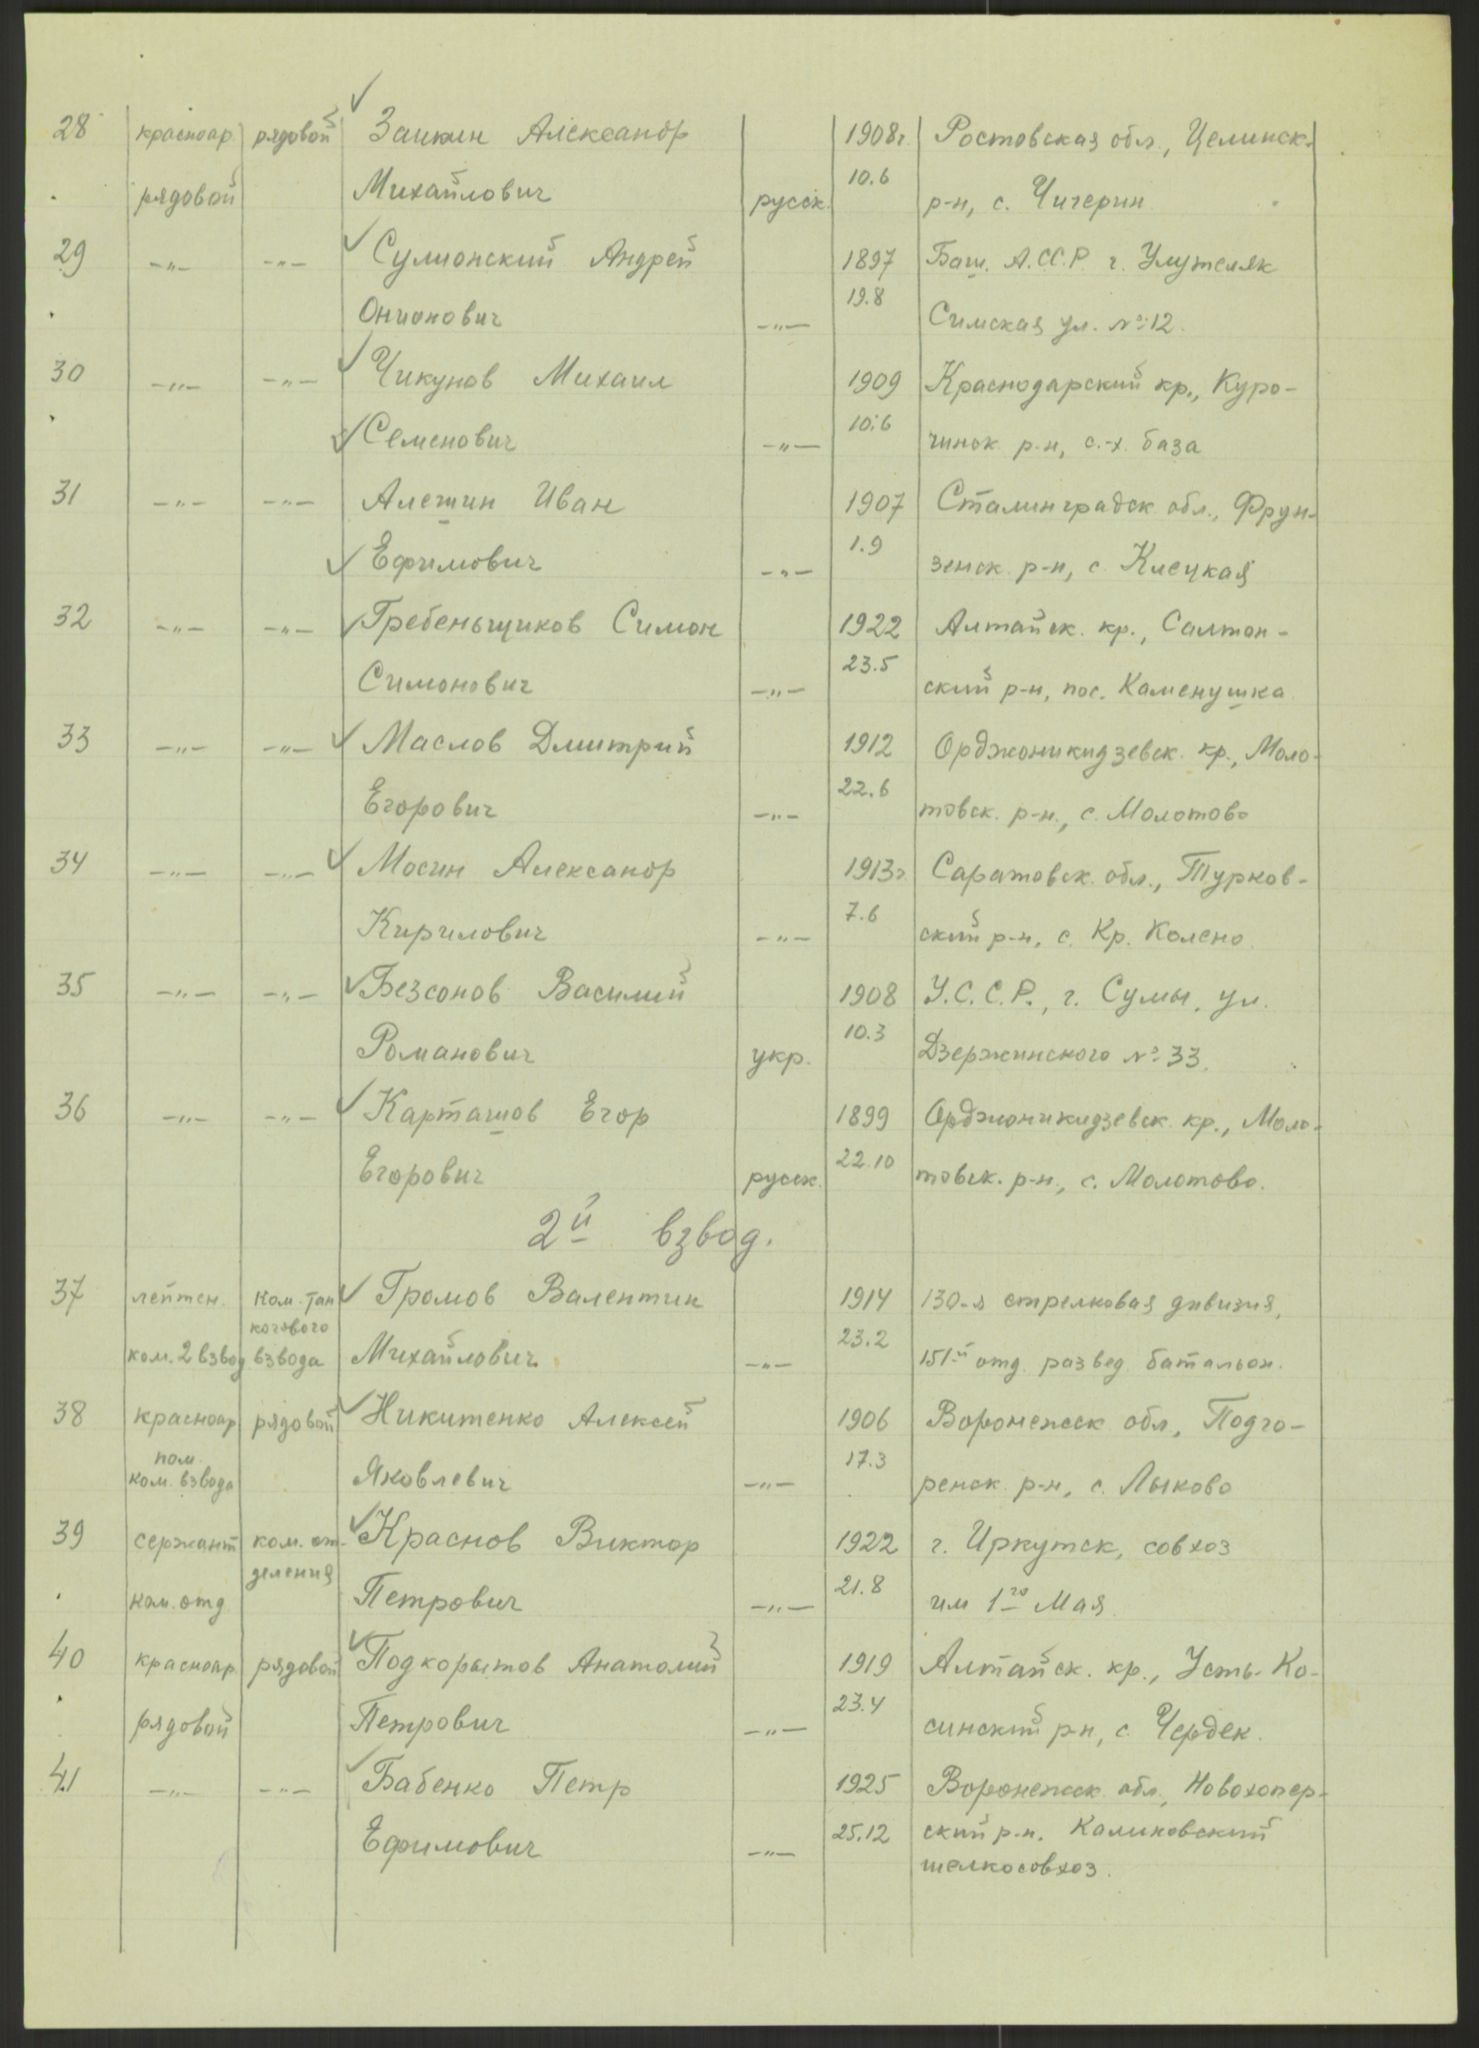 28 красноар. рядовой Заикин Александр 1908г. Ростовская обл., Целинск.
рядовой Михайлович русск. 10.6 р-н, с. Чичерин
29 -"- -"- Сулионский Андрей 1897 Баш. А.СС.Р. г. Улутеляк
Онионович -"- 19.8 Симская ул. № 12.
30 -"- -"- Чикунов Михаил 1909 Краснодарский кр., Куро-
Семенович -"- 10.6 чинск. р-н, с.-х. база
31 -"- -"- Алешин Иван 1907 Сталинградск. обл., Фрун-
Ефимович -"- 1.9 зенск. р-н, с. Клецкая
32 -"- -"- Гребеньщиков Симон 1922 Алтайск. кр., Салтон-
Симонович -"- 23.5 ский р-н, пос. Каменушка
33 -"- -"- Маслов Дмитрий 1912 Орджоникидзевск. кр., Моло-
Егорович -"- 22.6 товск. р-н., с. Молотово
34 -"- -"- Мосин Александр 1913г. Саратовск. обл., Турков-
Кирилович -"- 7.6 ский р-н, с. Кр. Колено.
35 -"- -"- Безсонов Василий 1908 У.С.С.Р., г. Сумы, ул.
Романович укр. 10.3 Дзержинского № 33.
36 -"- -"- Карташов Егор 1899 Орджоникидзевск. кр., Моло-
Егорович русск. 22.10 товск. р-н., с. Молотово.
2й взвод.
37 лейтен. ком. тан Громов Валентин 1914 130-я стрелковая дивизия,
когового
ком. 2 взвод взвода Михайлович -"- 23.2 151й отд. развед. батальон.
38 красноар рядовой Никитенко Алексей 1906 Воронежск обл., Подго-
пом.
ком. взвода Яковлевич -"- 17.3 ренск. р-н, с. Лыково
39 сержант ком. от- Краснов Виктор 1922 г. Иркутск, совхоз
деления
ком. отд Петрович -"- 21.8 им 1го Мая.
40 красноар. рядовой Подкорытов Анатолий 1919 Алтайск. кр., Усть-Ко-
рядовой Петрович -"- 23.4 синский р-н, с. Чердек.
41 -"- -"- Бабенко Петр 1925 Воронежск. обл., Новохопер-
Ефимович -"- 25.12 ский р-н. Калиновский
шелкосовхоз.